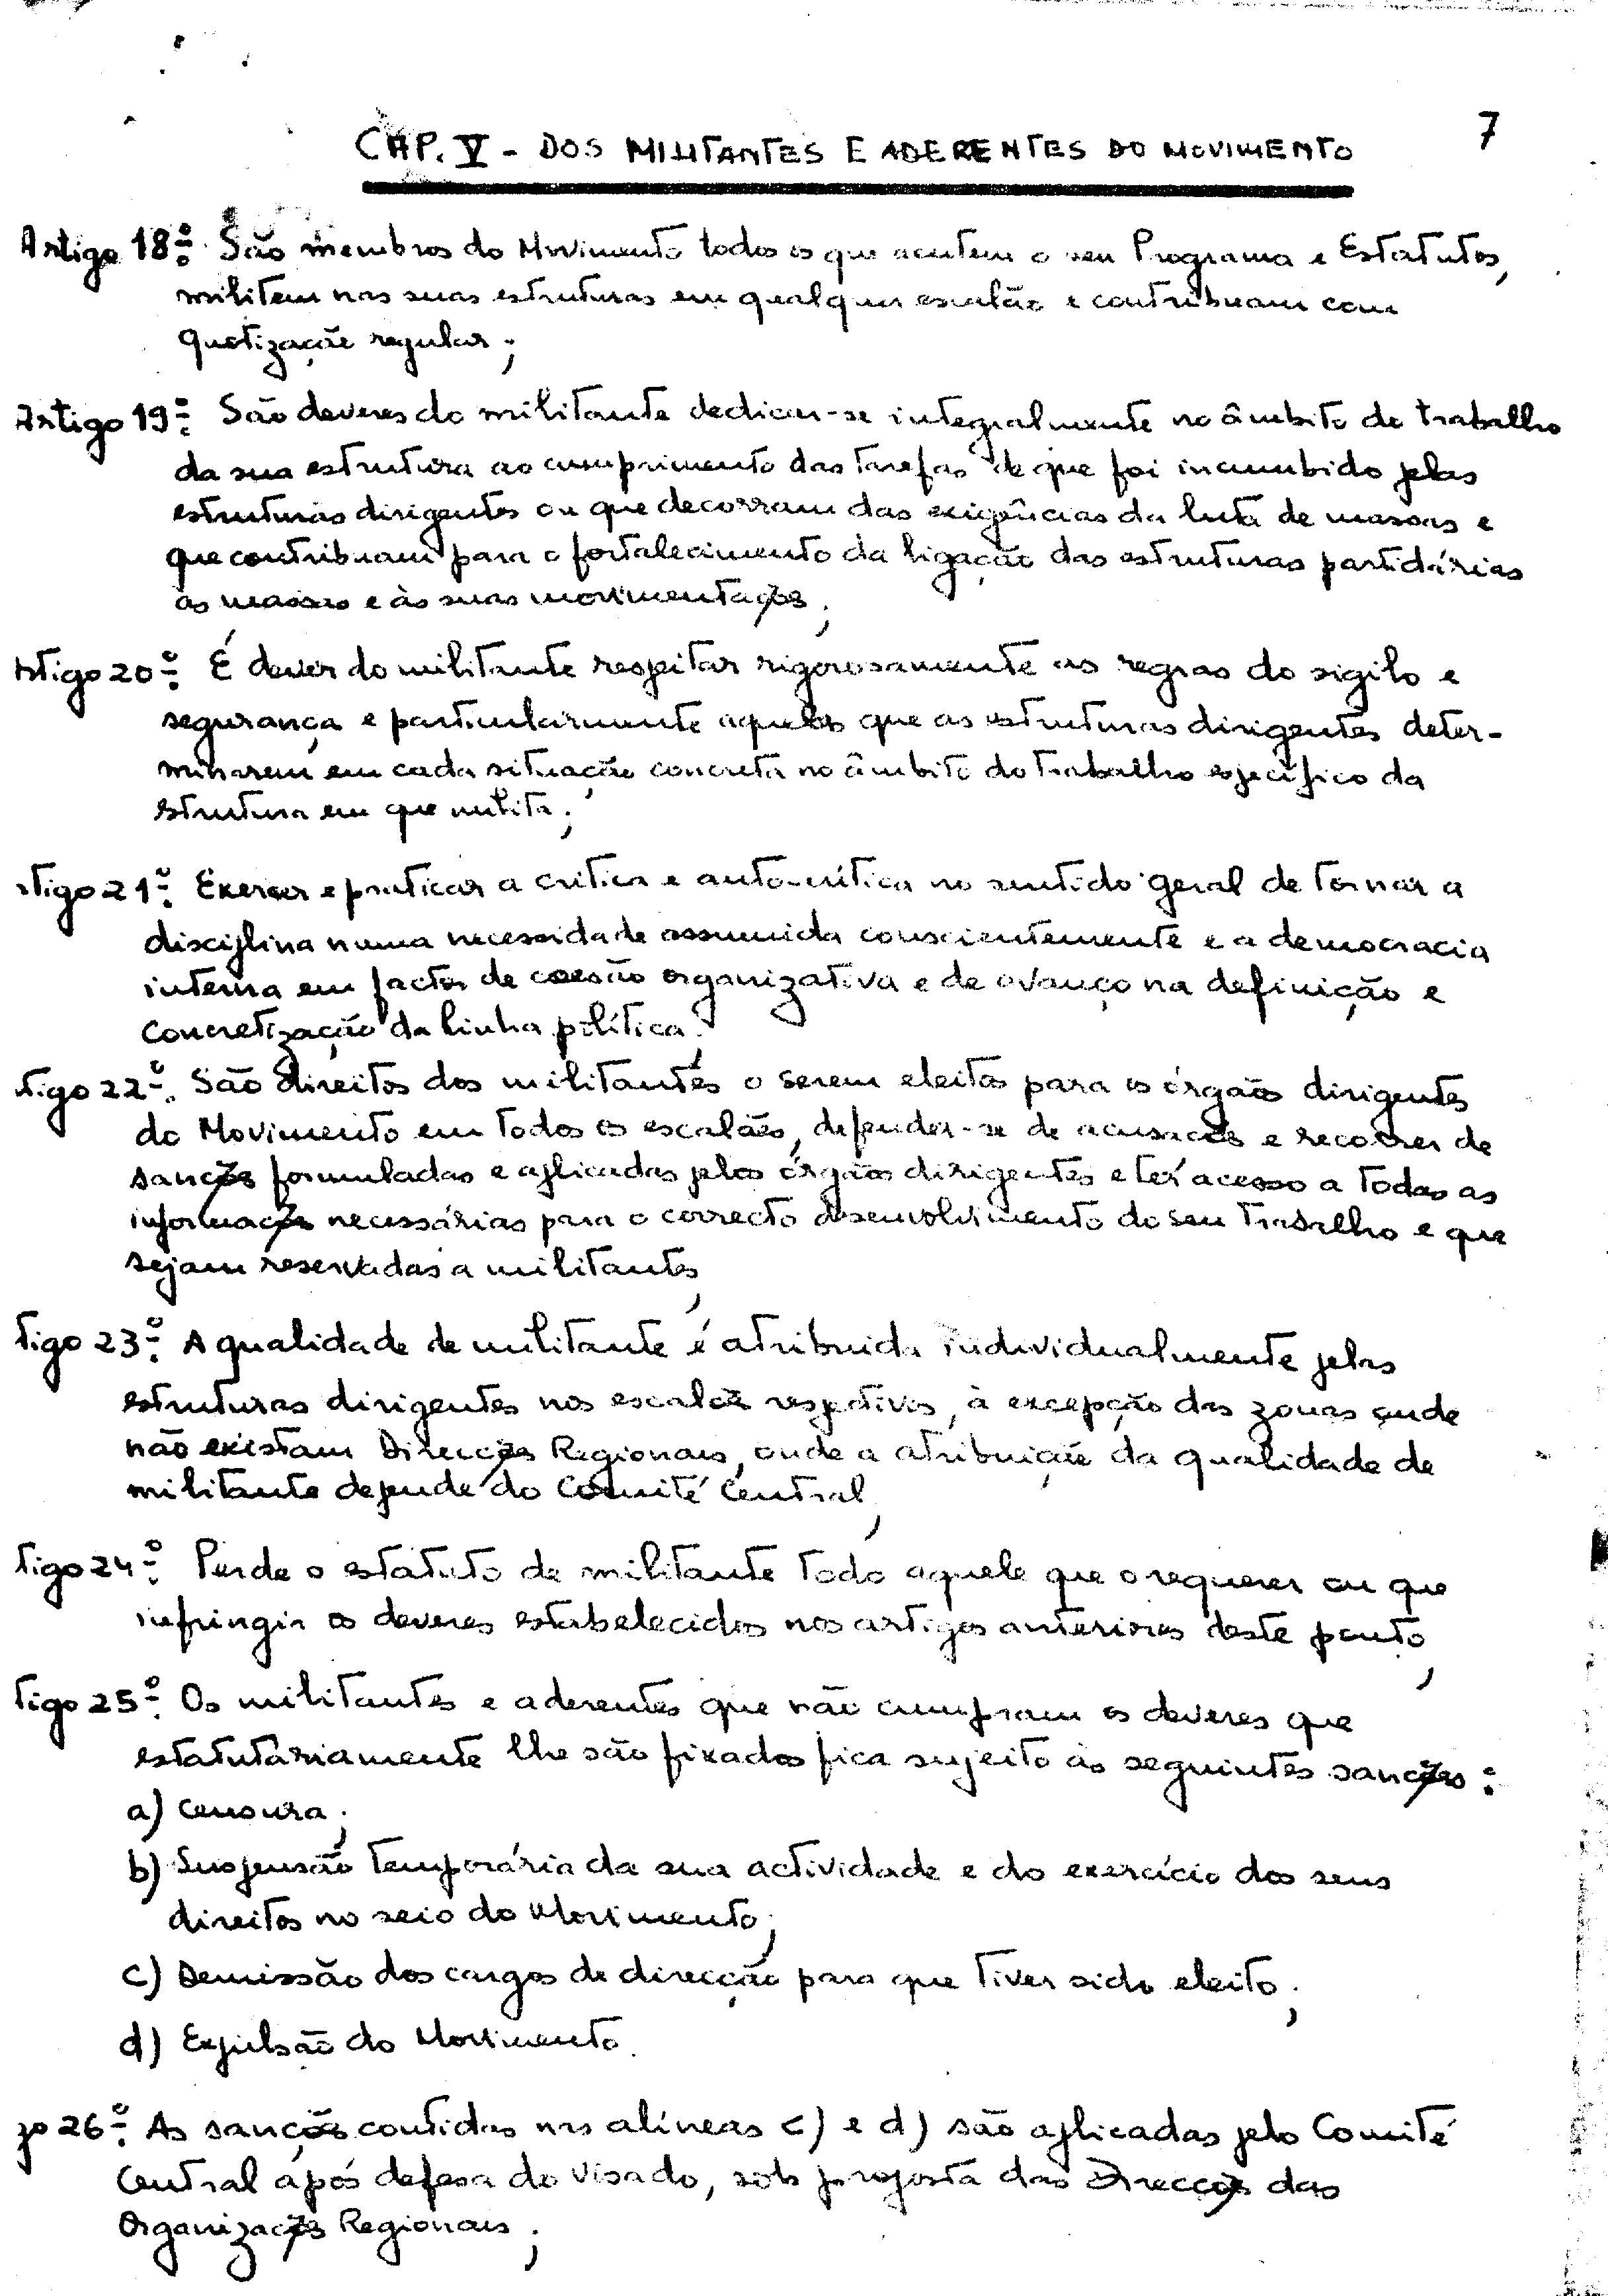 7
CAP. V - DOS MILITANTES E ADERENTES DO MOVIMENTO
Artigo 18º: São membros do Movimento todos os que aceitem o seu Programa e Estatutos,
militem nas suas estruturas em qualquer escalão e contribuam com
quotização regular;
Artigo 19º: São deveres do militante dedicar-se integralmente no âmbito do trabalho
da sua estrutura ao cumprimento das tarefas de que foi incumbido pelas
estruturas dirigentes ou que decorram das exigências da luta de massas e
que contribuam para o fortalecimento da ligação das estruturas partidárias
às massas e às suas movimentações;
rtigo 20º: É dever do militante respeitar rigorosamente as regras do sigilo e
segurança e particularmente aquelas que as estruturas dirigentes deter-
minarem em cada situação concreta no âmbito do trabalho específico da
estrutura em que milita;
rtigo 21º: Exercer e praticar a crítica e auto-crítica no sentido geral de tornar a
disciplina numa necessidade assumida conscientemente e a democracia
interna em factor de coesão organizativa e de avanço na definição e
concretização da linha política;
rtigo 22º: São direitos dos militantes o serem eleitos para os órgãos dirigentes
do Movimento em todos os escalões, defender-se de acusações e recorrer de
sanções formuladas e aplicadas pelos órgãos dirigentes e ter acesso a todas as
informações necessárias para o correcto desenvolvimento do seu trabalho e que
sejam reservadas a militantes;
tigo 23º: A qualidade de militante é atribuida individualmente pelas
estruturas dirigentes nos escalões respectivos, à excepção das zonas onde
não existam Direcções Regionais, onde a atribuição da qualidade de
militante depende do Comité Central;
tigo 24º: Perde o estatuto de militante todo aquele que o requerer ou que
infringir os deveres estabelecidos nos artigos anteriores deste ponto;
tigo 25º: Os militantes e aderentes que não cumpram os deveres que
estatutáriamente lhe são fixados fica sujeito às seguintes sanções:
a) Censura;
b) Suspensão temporária da sua actividade e do exercício dos seus
direitos no seio do Movimento;
c) Demissão dos cargos de direcção para que tiver sido eleito;
d) Expulsão do Movimento.
go 26º: As sanções contidas nas alíneas c) e d) são aplicadas pelo Comité
Central após defesa do visado, sob proposta das Direcções das
Organizações Regionais;